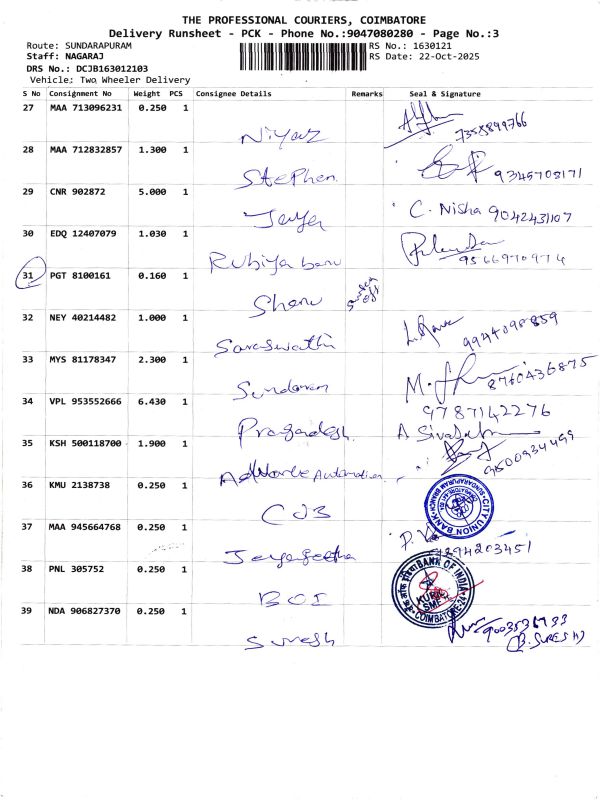 THE PROFESSIONAL COURIERS, COIMBATORE
Delivery Runsheet - PCK - Phone No.:9047080280 - Page No.:3
Route: SUNDARAPURAM
RS No.: 1630121
Staff: NAGARAJ
RS Date: 22-Oct-2025
DRS No.: DCJB163012103
Vehicle: Two Wheeler Delivery
S No Consignment No Weight PCS Consignee Details Remarks Seal & Signature
27 MAA 713096231 0.250 1
Niyaz 7358899766
28 MAA 712832857 1.300 1
Stephen 9345708171
29 CNR 902872 5.000 1
Jeya C. Nisha 9042431107
30 EDQ 12407079 1.030 1
Rubiya banu 9566970974
31 PGT 8100161 0.160 1
Shanu off
32 NEY 40214482 1.000 1
Saraswathi 9944098859
33 MYS 81178347 2.300 1
Sundaram M. 8760436875
34 VPL 953552666 6.430 1
9787142276
Pragadesh A
35 KSH 500118700 1.900 1
Advance Automation 9500934499
36 KMU 2138738 0.250 1
CUB
CITY UNION BANK
SUNDARAPURAM BRANCH
37 MAA 945664768 0.250 1
Jeyageetha P. 7894203451
38 PNL 305752 0.250 1
BOI
BANK OF INDIA
COIMBATORE-24
39 NDA 906827370 0.250 1
Suresh 9003536733
(B. SURESH)